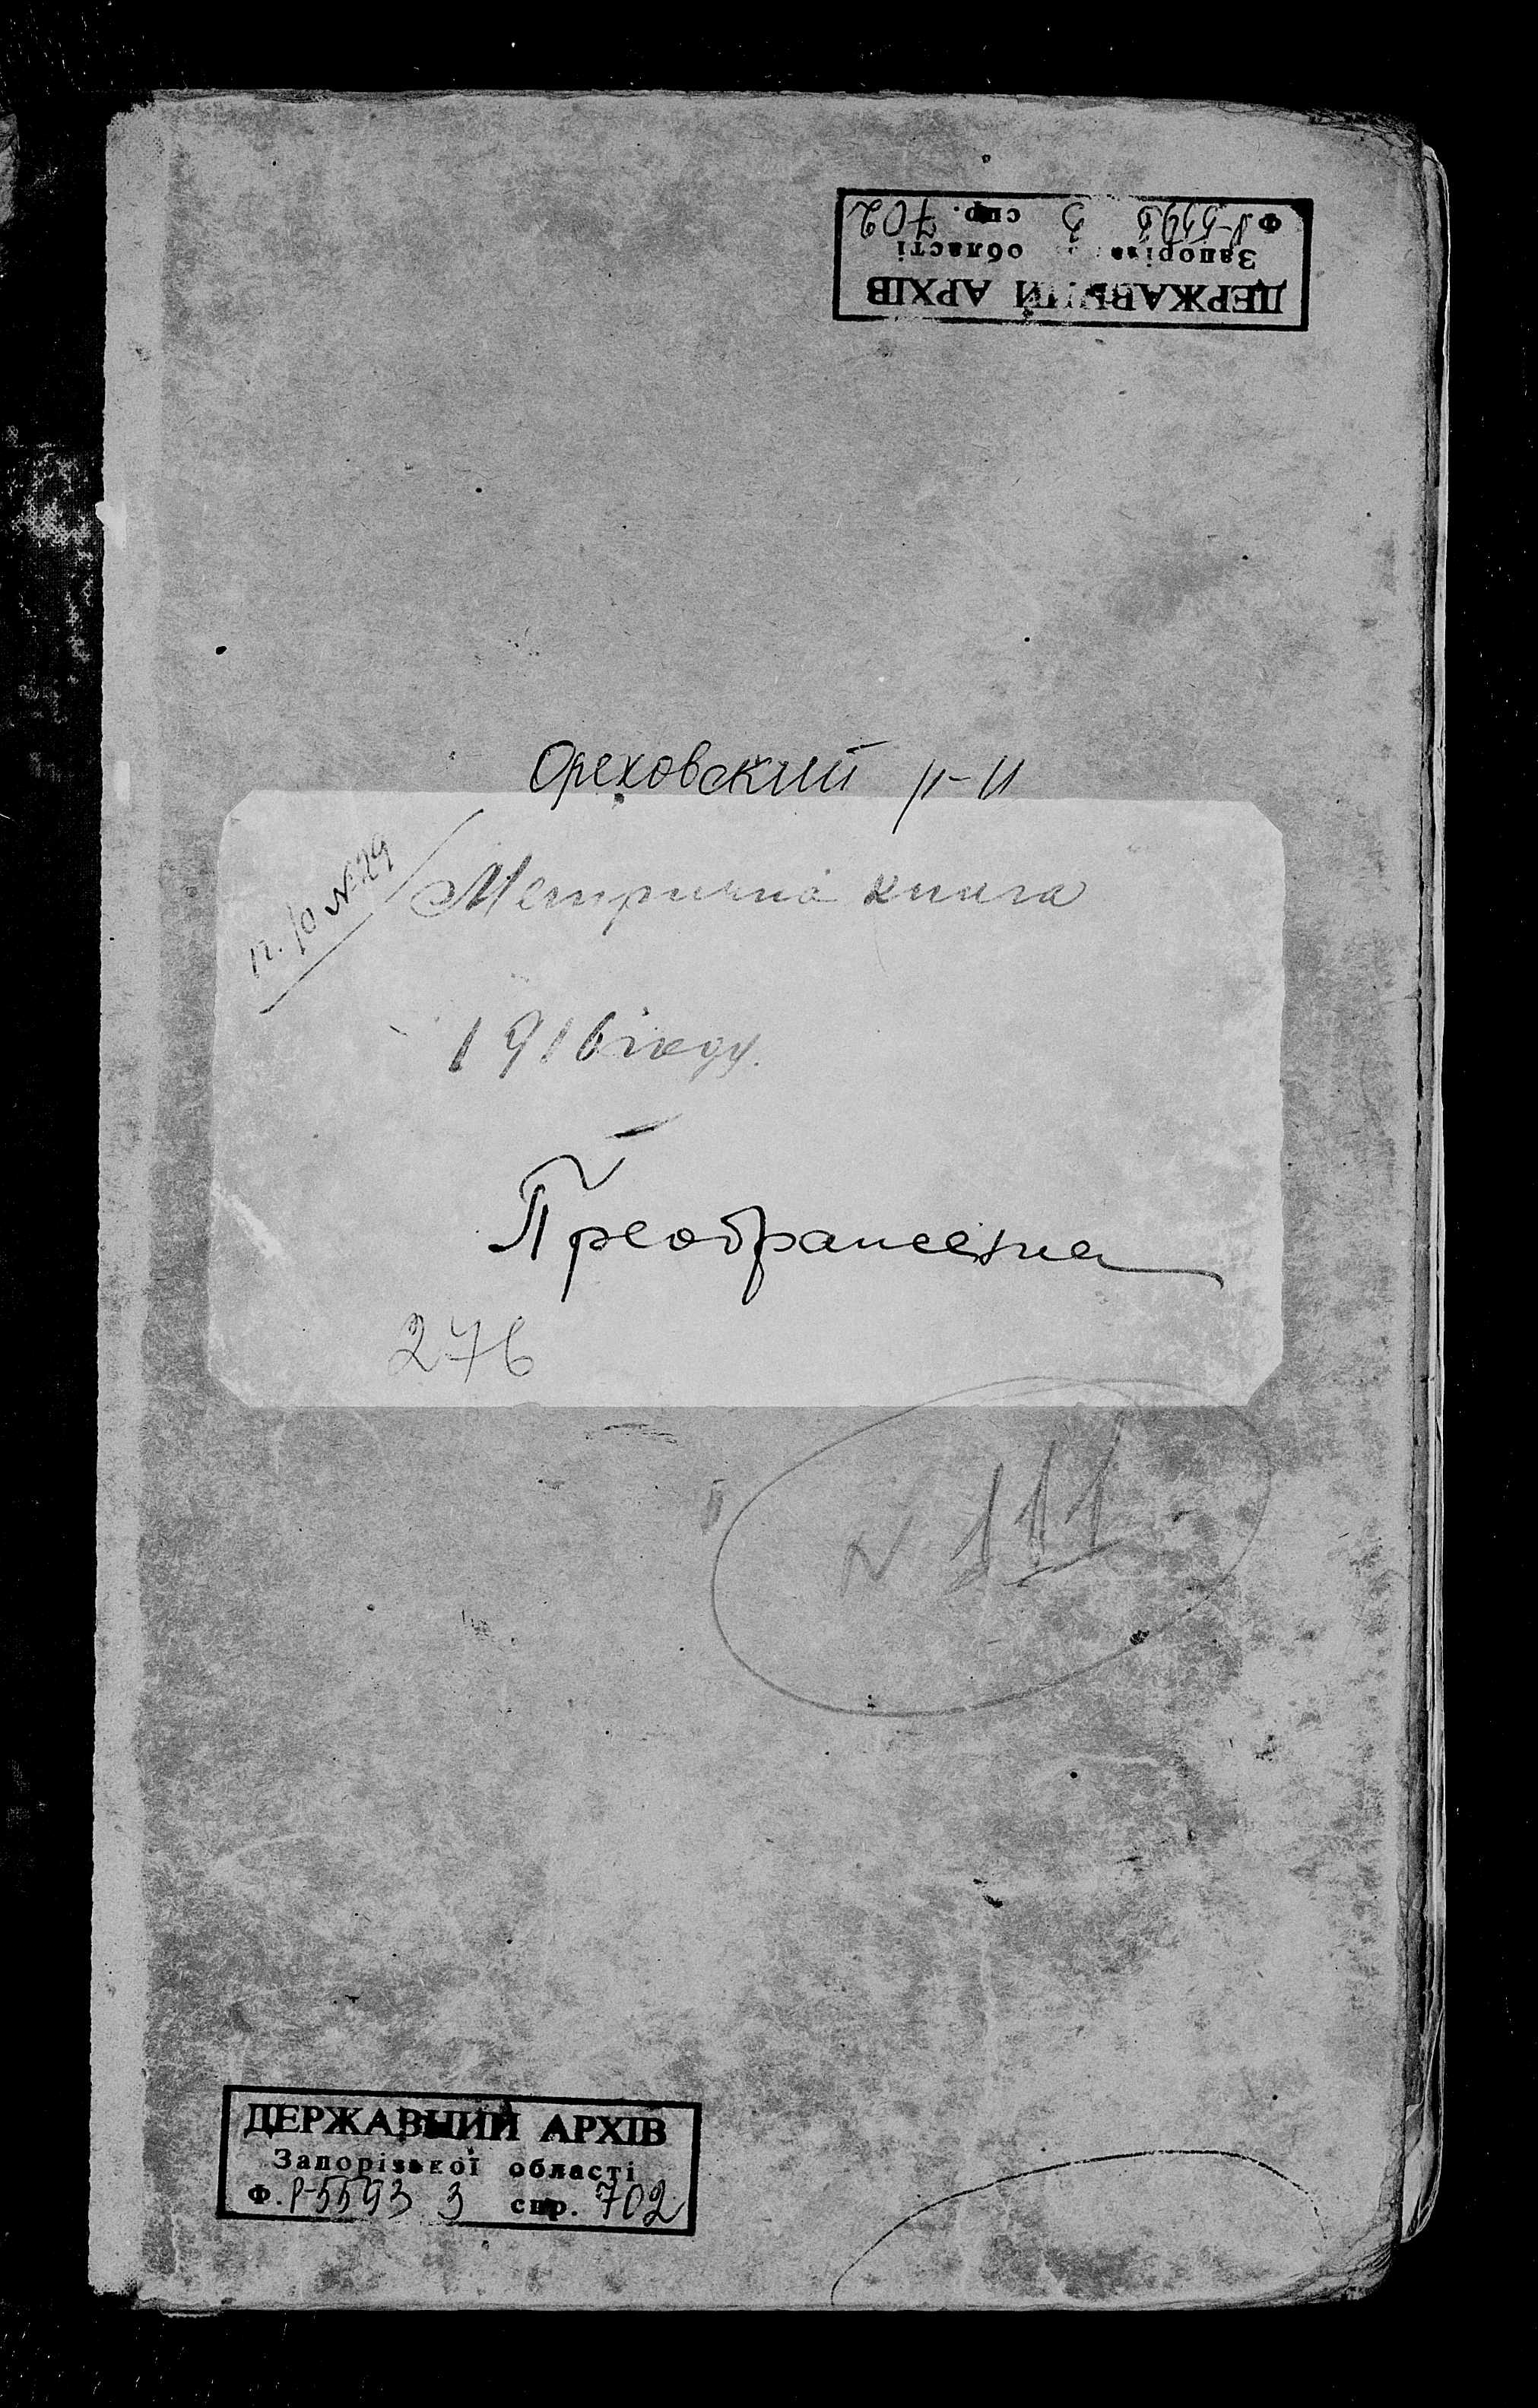 ДЕРЖАВНИЙ АРХІВ
Запорізької області
Ф. Р-5593 3 спр. 702
Ореховский р-н
п. 10 №29
Метрична книга
1916 году.
Преображенка
276
N 111
ДЕРЖАВНИЙ АРХІВ
Запорізької області
Ф. Р-5593 3 спр. 702